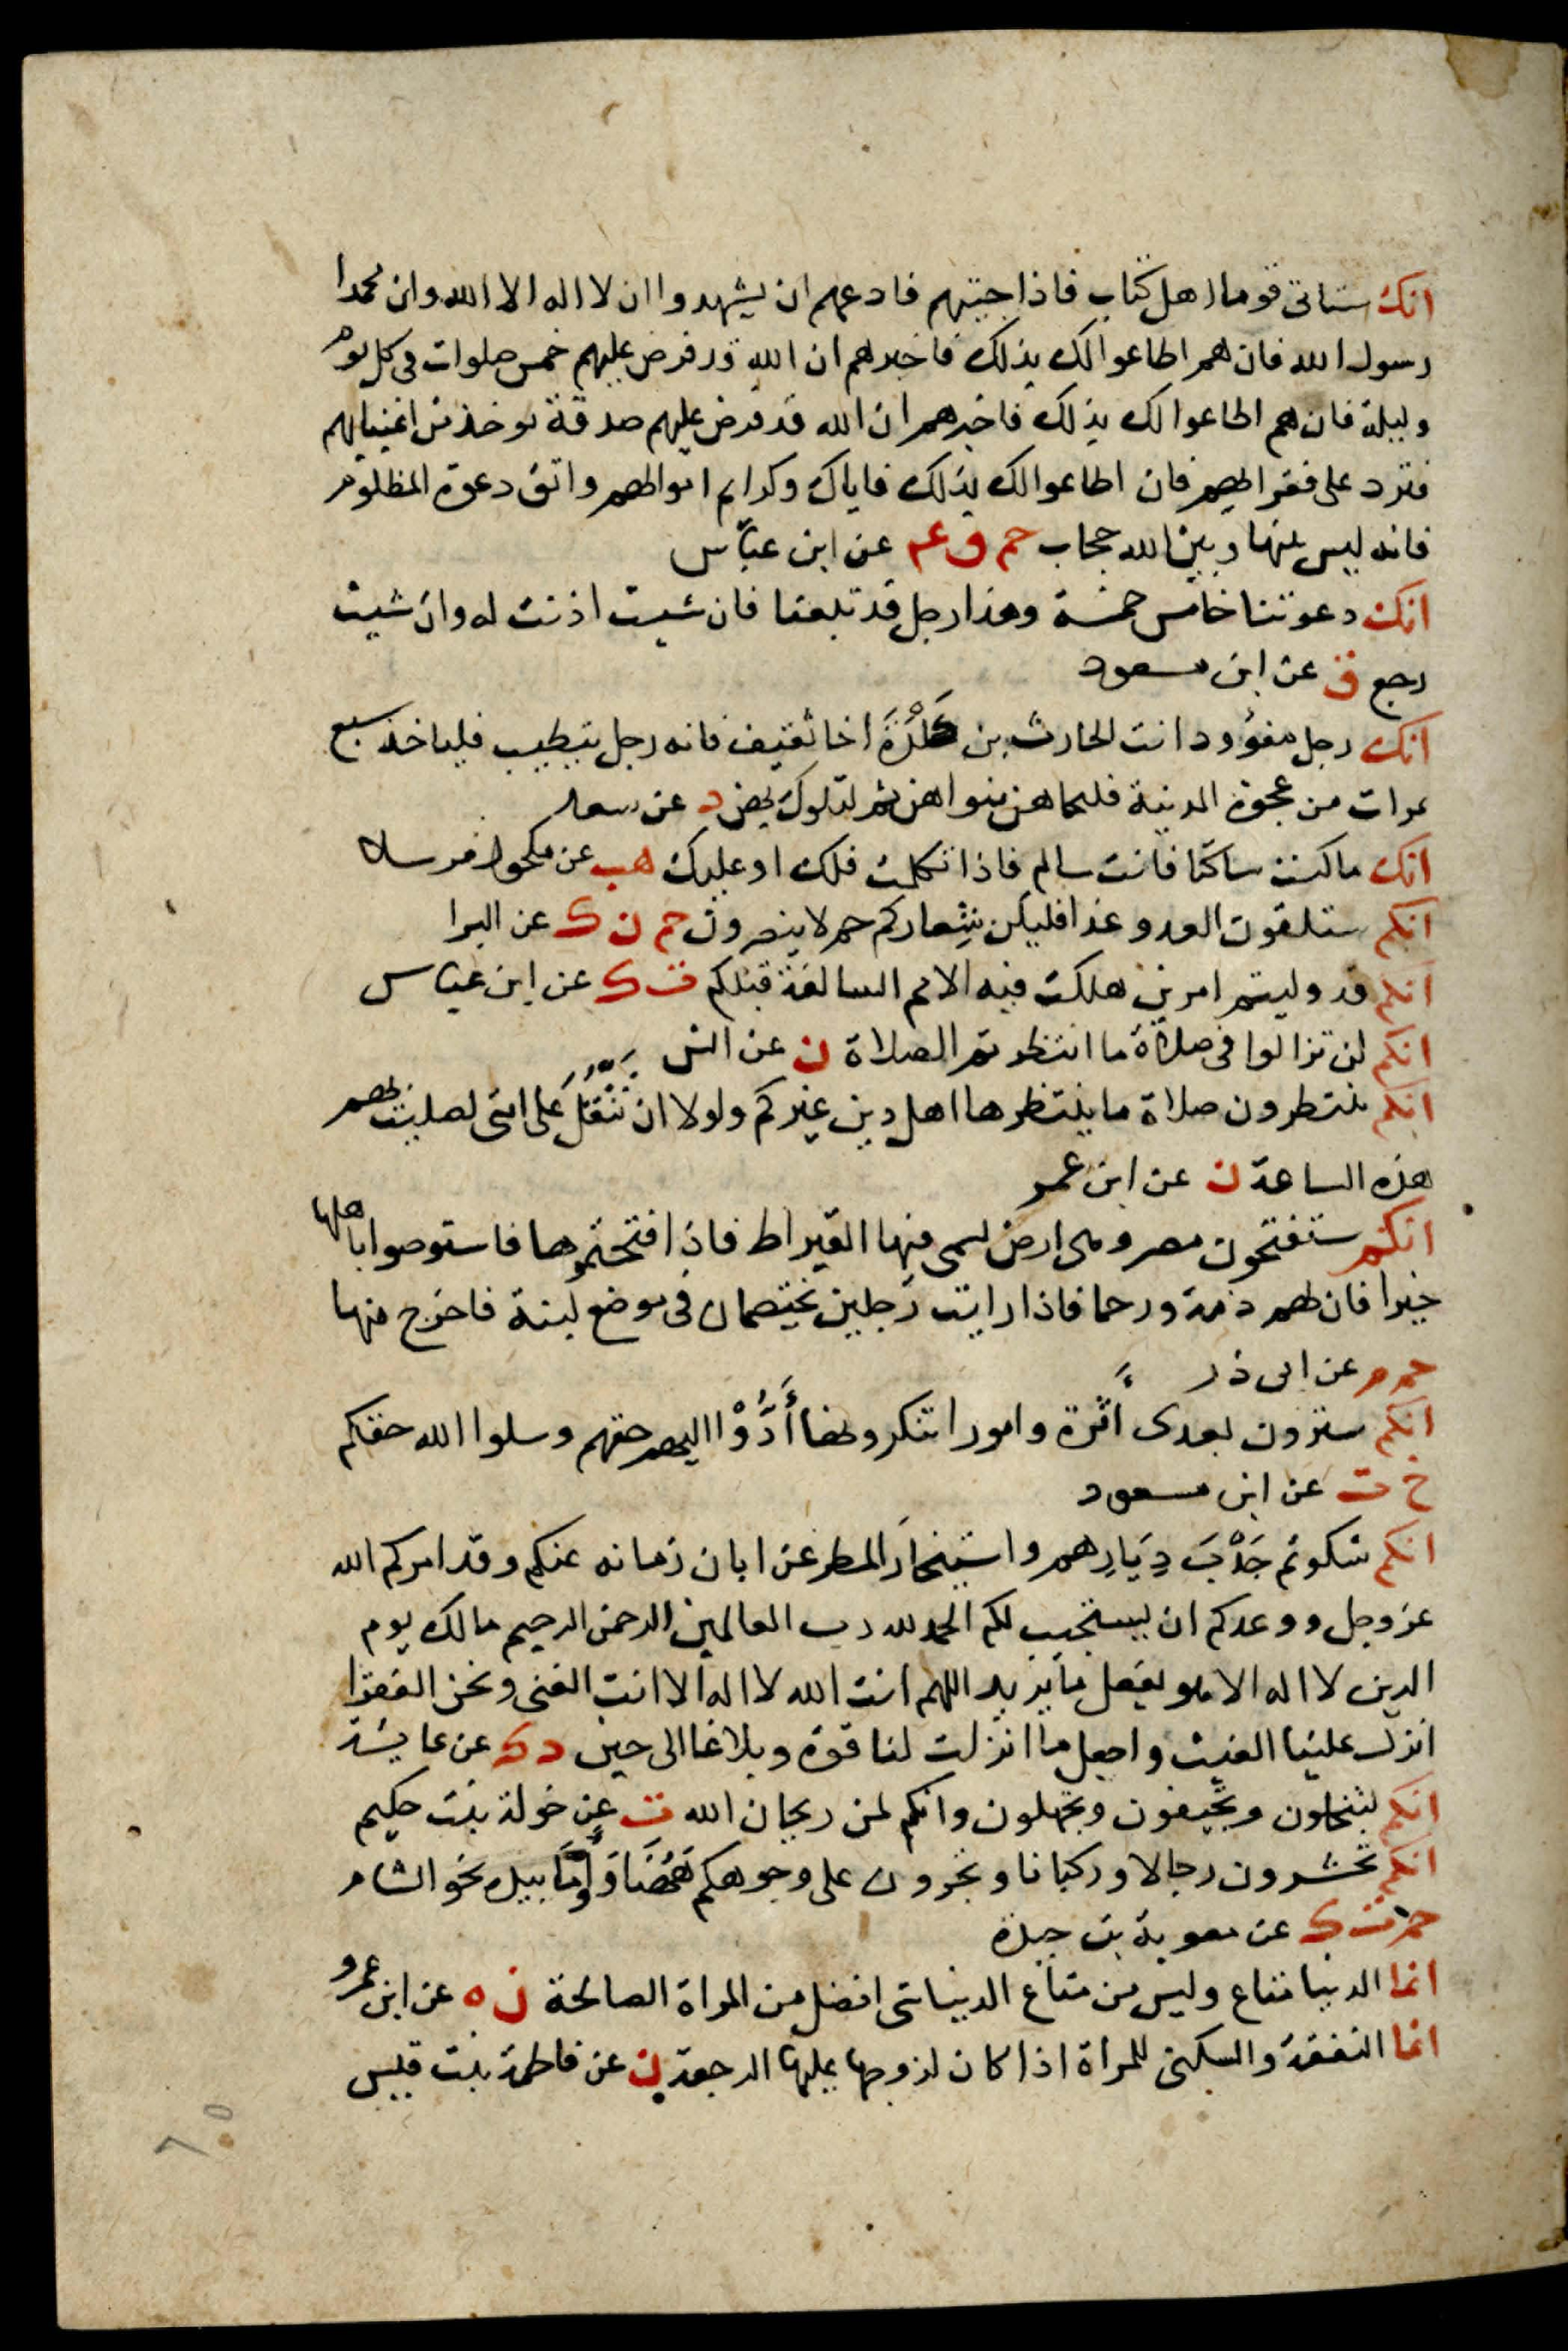 انك ستاتى قوما اهل كتاب فاذا جيتهم فادعهم ان يشهدوا ان لا اله الا الله وان محمدا
رسول الله فان هم اطاعوا لك بذلك فاخبرهم ان الله قد فرض عليهم خمس صلوات فى كل يوم
وليلة فان هم اطاعوا لك بذلك فاخبرهم ان الله قد فرض عليهم صدقة توخذ من اغنيايهم
فترد على فقرايهم فان اطاعوا لك بذلك فاياك وكرايم اموالهم واتق دعوة المظلوم
فانه ليس بينها وبين الله حجاب حم ق عه عن ابن عبّاس
انك دعوتنا خامس خمسة وهذا رجل قد تبعنا فان شيت اذنت له وان شيت
رجع ق عن ابن مسعود
انك رجل مفؤود ائت الحارث بن كَلْدَةَ اخا ثقيف فانه رجل يتطبب فلياخذ سبع
تمرات من عجوة المدينة فليجاهن بنواهن ثم ليدلوك بهن د عن سعد
انك ما كنت ساكتا فانت سالم فاذا تكلمت فلك او عليك هب عن مكحول مرسلا
انكم ستلقون العدو غدا فليكن شِعاركم حم لا ينصرون حم ن ك عن البرا
انكم قد وليتم امرين هلكت فيه الامم السالفة قبلكم ت ك عن ابن عباس
انكم لن تزالوا فى صلاة ما انتظرتم الصلاة ن عن انس
انكم تنتظرون صلاة ما ينتظرها اهل دين غيركم ولولا ان تَثْقُلَ على امتى لصليت بهم
هذه الساعة ن عن ابن عمر
انكم ستفتحون مصر وهى ارض يسمى فيها القيراط فاذا فتحتموها فاستوصوا باهلها
خيرا فان لهم ذمة ورحما فاذا رايت رجلين يختصمان فى موضع لبنة فاخرج منها
حم م عن ابى ذر
انكم سترون بعدى اَثرة وامورا تنكرونها أَدُّوْا اليهم حقهم وسلوا الله حقكم
خ ت عن ابن مسعود
انكم شكوتم جَدْبَ دِيَارِهم واستيخارَ المطر عن ابان زمانه عنكم وقد امركم الله
عز وجل ووعدكم ان يستجيب لكم الحمد لله رب العالمين الرحمن الرحيم مالك يوم
الدين لا اله الا هو يفعل ما يريد اللهم انت الله لا اله الا انت الغنى ونحن الفقرا
انزل علينا الغيث واجعل ما انزلت لنا قوة وبلاغا الى حين د ك عن عايشة
انكم لتبخلون وتجبنون وتجهلون وانكم لمن ريحان الله ت عن خولة بنت حكيم
انكم تحشرون رجالا وركبانا وتجرون على وجوهكم هَهُنَا وَاومَا بيده نحو الشام
حم ت ك عن معوية بن حيدة
انما الدنيا متاع وليس من متاع الدنيا شى افضل من المراة الصالحة ن ه عن ابن عمرو
انما النفقة والسكنى للمراة اذا كان لزوجها عليها الرجعة ن عن فاطمة بنت قيس